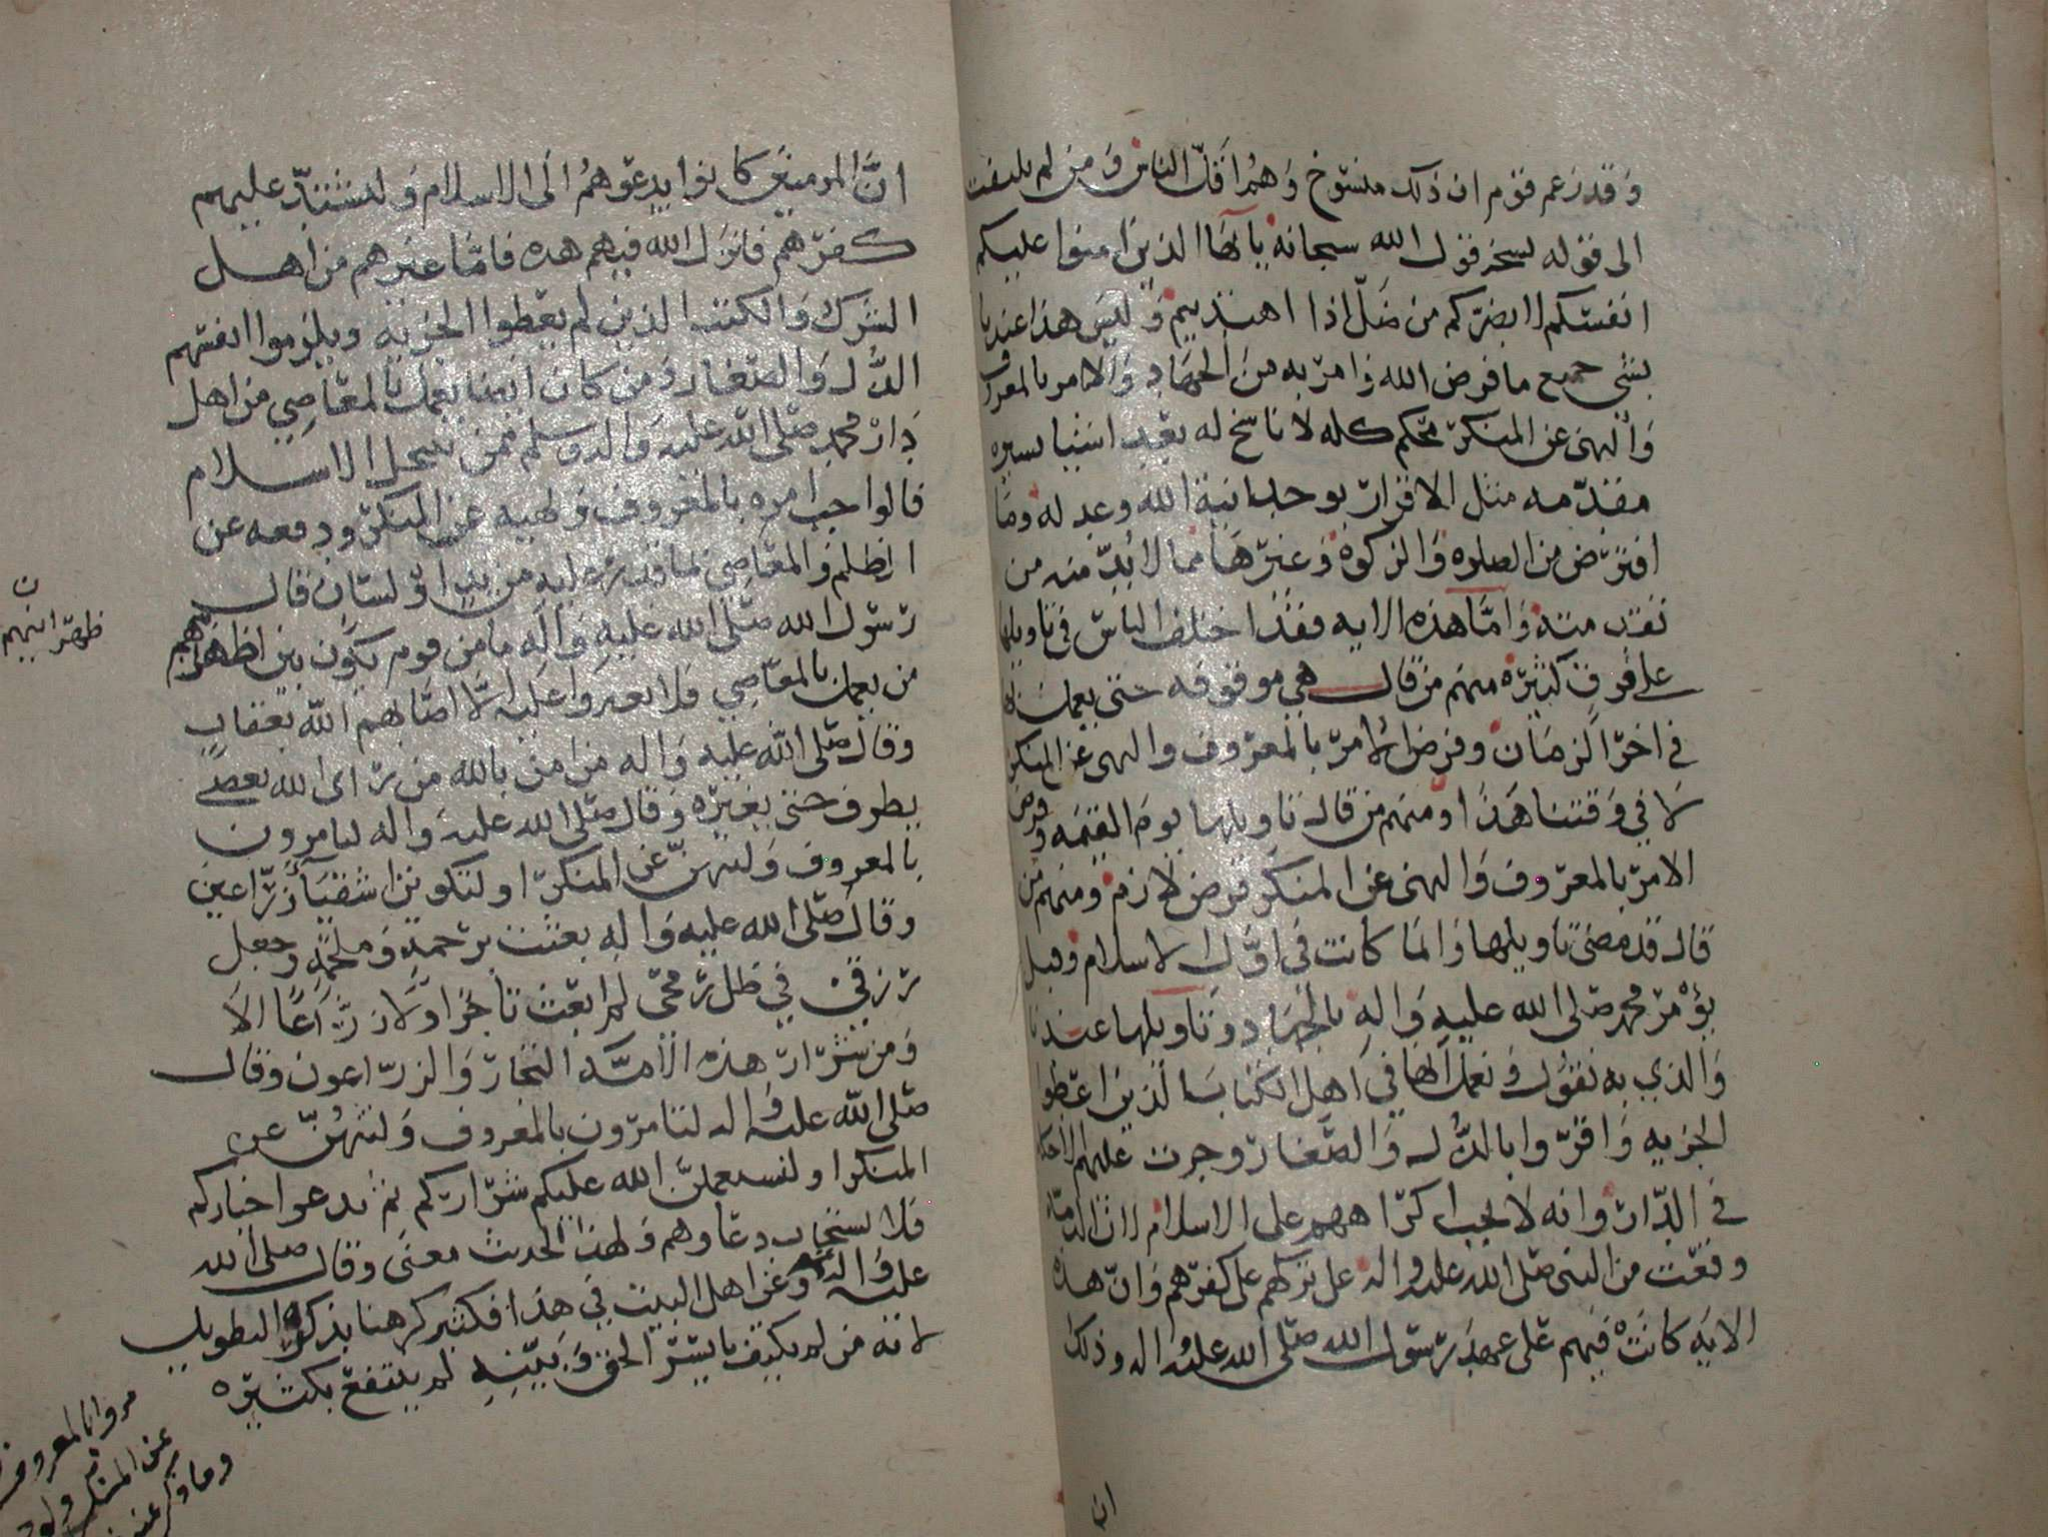 وقد زعم قوم ان ذلك منسوخ وهم اقل الناس ومن لم يلتفت
الى قوله نسخه قول الله سبحانه يا ايها الذين امنوا عليكم
انفسكم لا يضركم من ضل اذا اهتديتم وليس هذا عندنا
بشي جميع ما فرض الله وامر به من الجهاد والامر بالمعروف
والنهي عن المنكر محكم كله لا ناسخ له بعد اشيا يسيره
مقدمه مثل الاقرار بوحدانية الله وعدله وما
افترض من الصلوه والزكوة وغيرها مما لا بد منه من
تقدمته واما هذه الايه فقد اختلف الناس في تاويلها
على فرق كثيره منهم من قال هي موقوفه حتى يعمل بها
في اخر الزمان وفرض الامر بالمعروف والنهي عن المنكر
لا في وقتنا هذا ومنهم من قال تاويلها يوم القيمه وفرض
الامر بالمعروف والنهي عن المنكر فرض لازم ومنهم من
قال قد مضى تاويلها وانما كانت في اول الاسلام وقبل
يؤمر محمد صلى الله عليه واله بالجهاد وتاويلها عندنا
والذي به نقول ونعمل انها في اهل الكتاب الذين اعطوا
الجزيه واقروا بالذل والصغار وجرت عليهم الاحكام
في الدار وانه لا يجب اكراههم على الاسلام لان الذمة
وقعت من النبي صلى الله عليه واله على تركهم على كفرهم وان هذه
الايه كانت فيهم على عهد رسول الله صلى الله عليه واله وذلك
ان
ان المومنين كانوا يدعوهم الى الاسلام ولشتد عليهم
كفرهم فانزل الله فيهم هذه فاما غيرهم من اهل
الشرك والكتب الذين لم يعطوا الجزيه ويلزموا انفسهم
الذل والصغار ومن كان ايضا يعمل بالمعاصي من اهل
دار محمد صلى الله عليه واله وسلم فمن ينتحل الاسلام
فالواجب امره بالمعروف ونهيه عن المنكر ودفعه عن
الظلم والمعاصي بما قدر عليه من يد او لسان قال
رسول الله صلى الله عليه واله ما من قوم يكون بين اظهرهم
ظهرانيهم ن
من يعمل بالمعاصي فلا يغيروا عليه الا اصابهم الله بعقاب
وقال صلى الله عليه واله من امن بالله من راى الله يعصى
يطرف حتى يغيره وقال صلى الله عليه واله لتامرون
بالمعروف ولتنهن عن المنكر او لتكونن اشقيا زراعين
وقال صلى الله عليه واله بعثت برحمة وملحمة وجعل
رزقي في ظل رمحي لم ابعث تاجرا ولا زراعا الا
ومن شرار هذه الامه التجار والزراعون وقال
صلى الله عليه واله لتامرون بالمعروف ولتنهن عن
المنكر او لنستعملن الله عليكم شراركم ثم يدعوا خياركم
فلا يستجاب دعاوهم ولهذا الحديث معنى وقال صلى الله
عليه واله وعن اهل البيت في هذا فكثير كرهنا بذكره التطويل
لانه من لم يكتف بايسر الحق وبينه لم ينتفع بكثيره
مروا بالمعروف
عن المنكر